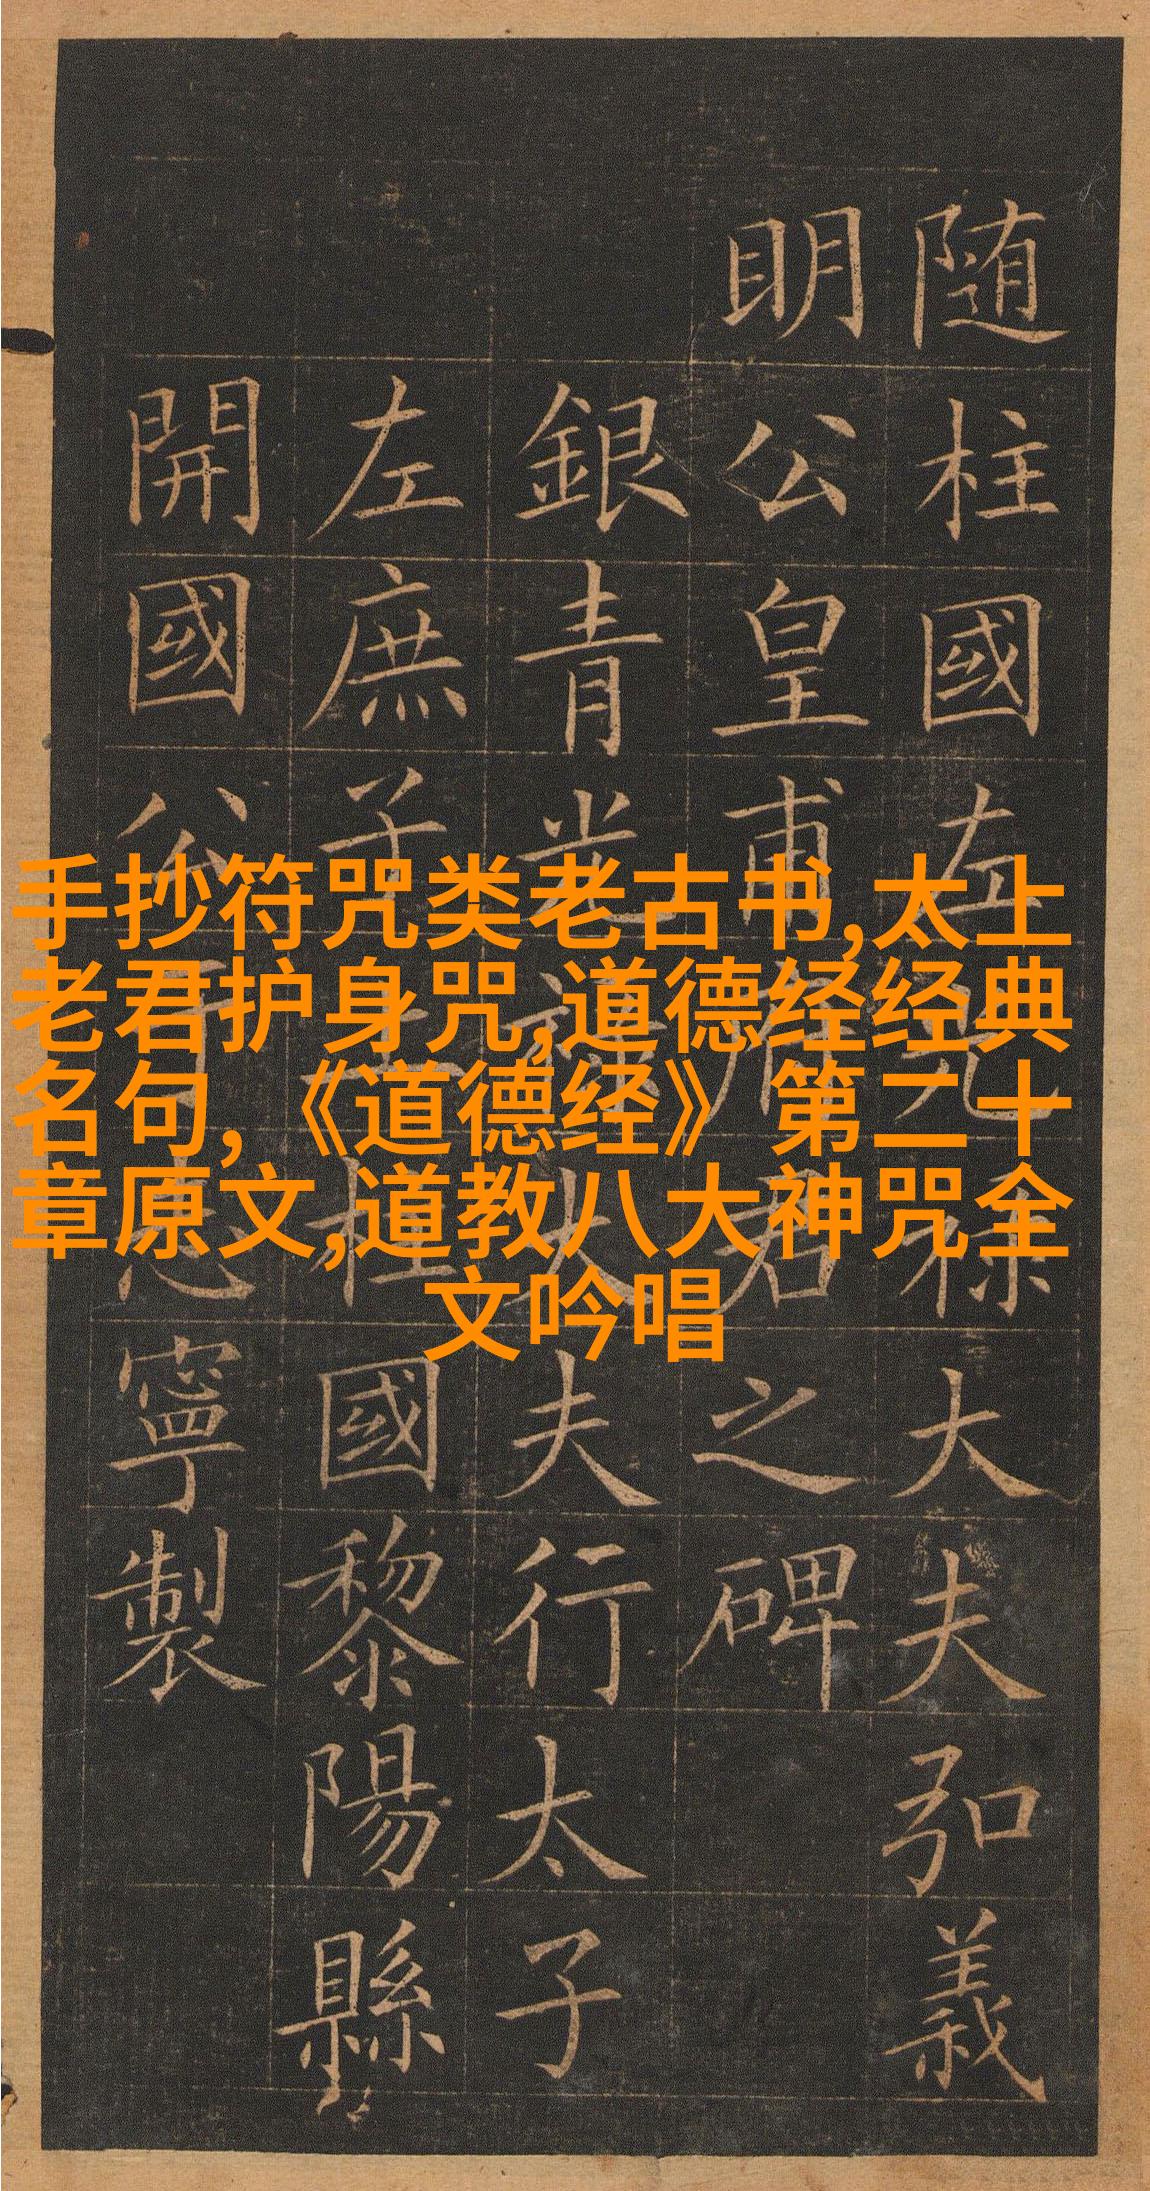 随柱國左光禄大夫弘義
明公皇甫府君之碑
銀青光禄大夫行太子
左庶子上柱國黎陽縣
開國公于志寧製
手抄符咒类老古书,太上
老君护身咒,道德经经典
名句,《道德经》第二十
章原文,道教八大神咒全
文吟唱